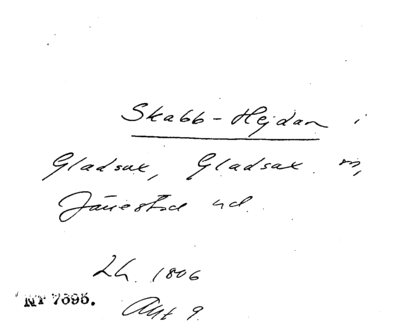 Skabb-Hejdan i
Gladsax, Gladsax sn,
Järrestad hd.
Lh. 1806
NT 7595.
Akt 9